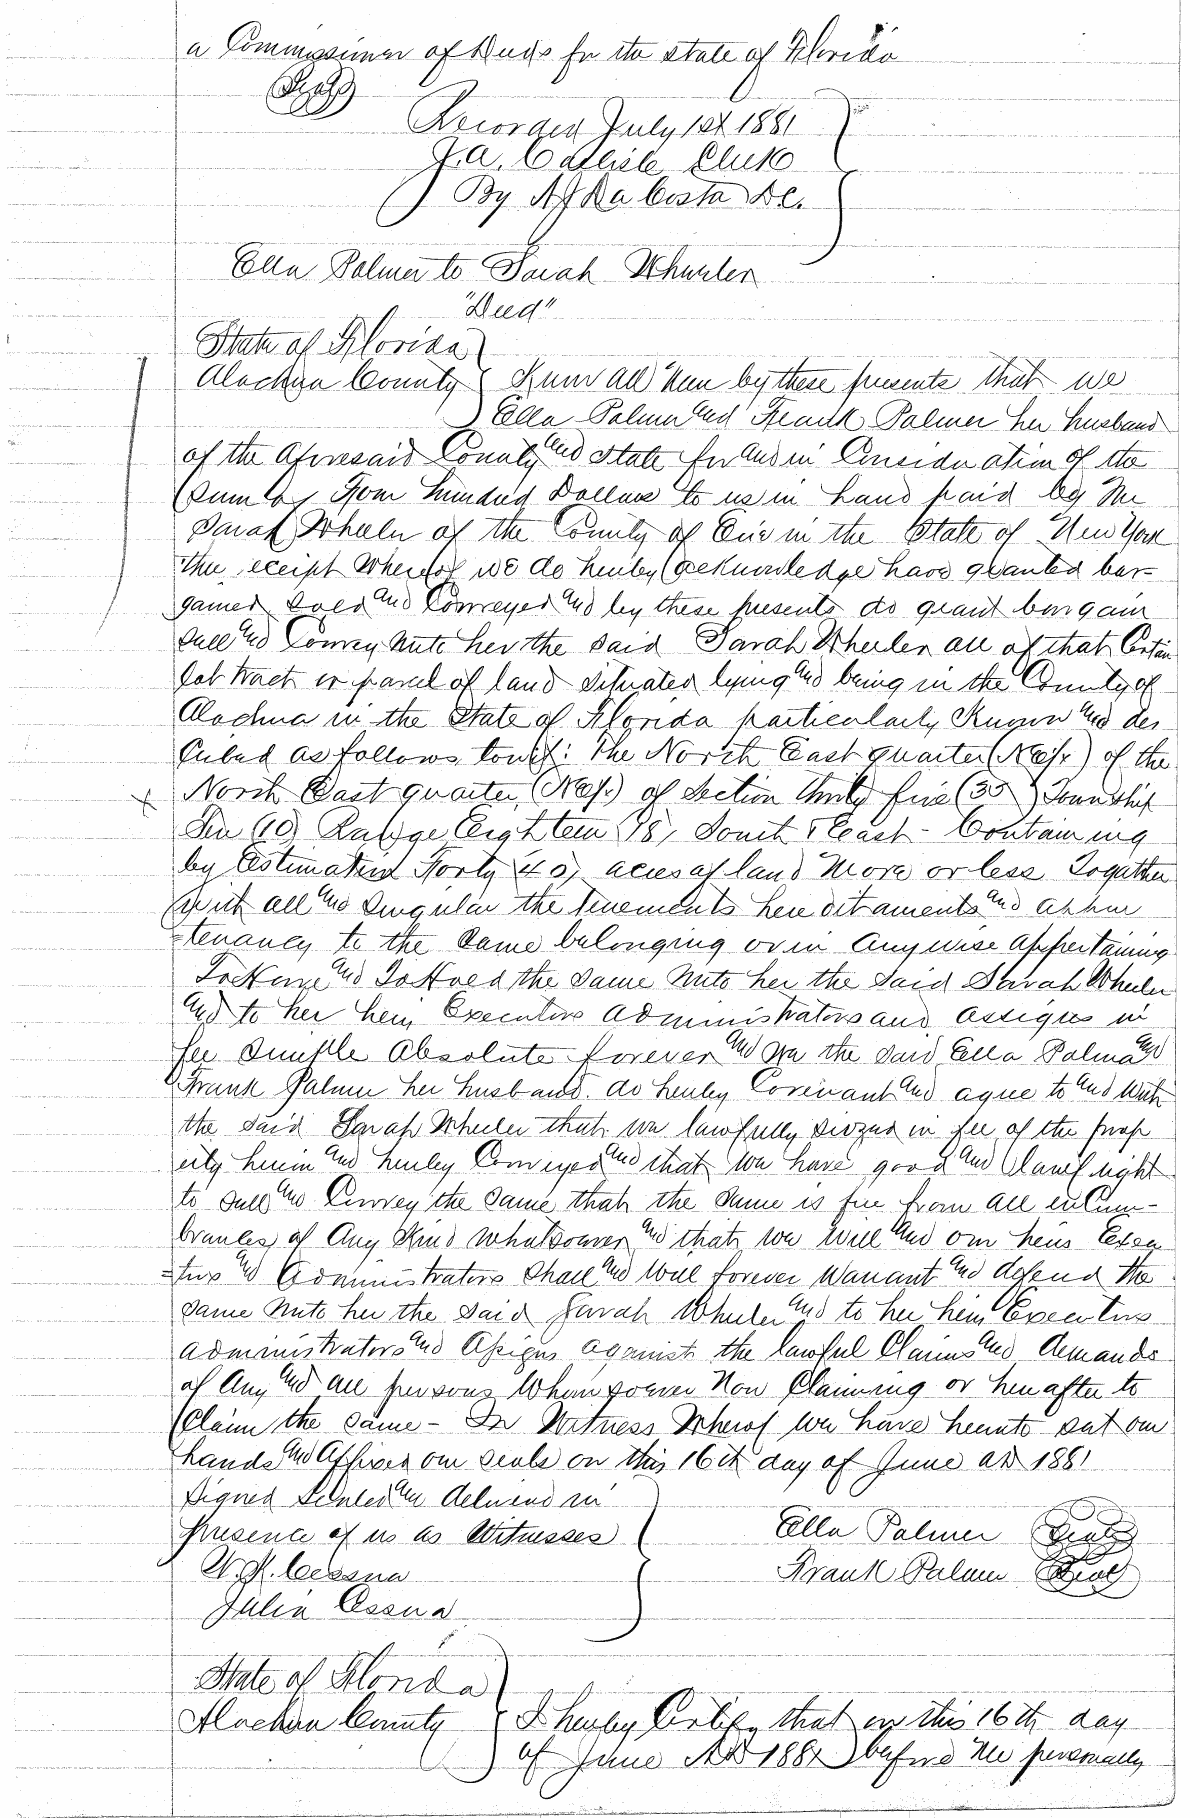 a Commissioner of Deeds for the state of Florida
(Seal)
Recorded July 1st 1881
J.A. Carlisle Clerk
By A J Da Costa D.C.
Ella Palmer to Sarah Wheeler
"Deed"
State of Florida
Alachua County Know all Men by these presents that we
Ella Palmer and Frank Palmer her husband
of the Aforesaid County and State for and in Consideration of the
Sum of Four hundred Dollars to us in hand paid by Mrs
Sarah Wheeler of the County of Erie in the State of New York
the receipt Whereof we do hereby acknowledge have granted bar-
gained sold and Conveyed and by these presents do grant bargain
sell and Convey unto her the said Sarah Wheeler all of that Certain
lot tract or parcel of land situated lying and being in the County of
Alachua in the State of Florida particularly Known and des
cribed as follows towit: the North East quarter (Ne¼) of the
North East quarter (Ne¼) of Section thirty five (35) Township
Ten (10) Range Eighteen 18, South & East - Containing
by Estimation Forty (40) acres of land More or less Together
with all and Singular the tenements hereditaments and appur
=tenancy to the same belonging or in Anywise Appertaining
To Have and To Hold the same unto her the said Sarah Wheeler
and to her heirs Executors administrators and assigns in
fee simple Absolute forever and we the said Ella Palmer and
Frank Palmer her husband do hereby Covenant and agree to and with
the said Sarah Wheeler that we lawfully siezed in fee of the prop
erty herein and hereby Conveyed and that we have good and lawful right
to sell and Convey the same that the same is free from all encum-
brances of Any Kind whatsoever and that we will and our heirs Execu
=tors and Administrators shall and will forever Warrant and defend the
same unto her the said Sarah Wheeler and to her heirs Executors
administrators and Assigns against the lawful Claims and demands
of Any and all persons Whomsoever Now Claiming or hereafter to
Claim the same - In Witness Whereof we have hereunto set our
hands and Affixed our seals on this 16th day of June AD 1881
Signed Sealed and delivered in
presence of us as Witnesses
Ella Palmer Seal
W.H. Cessna
Frank Palmer Seal
Julia Cessna
State of Florida
Alachua County I hereby Certify that on this 16th day
of June AD 1881 before me personally